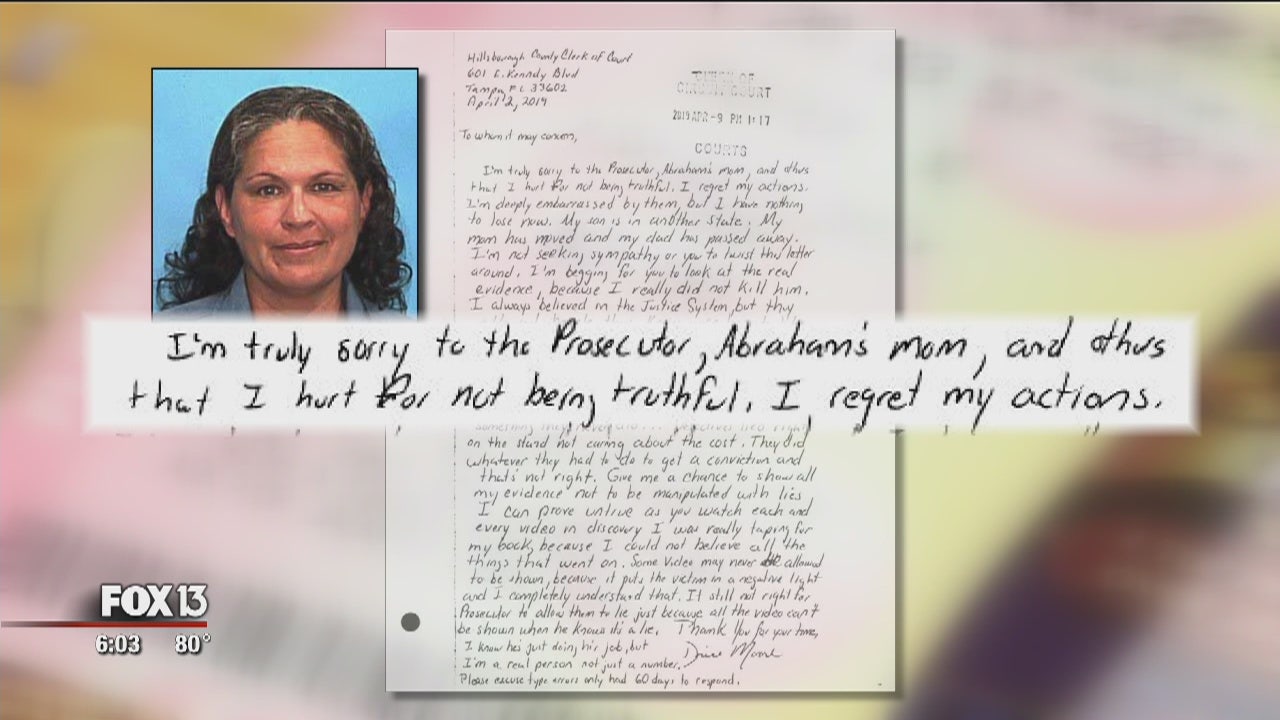 Hillsborough County Clerk of Court
601 E. Kennedy Blvd
Tampa, FL 33602
April 2, 2019
CLERK OF
CIRCUIT COURT
2019 APR -9 PM 1:17
COURTS
To whom it may concern,
I'm truly sorry to the Prosecutor, Abraham's mom, and othrs
that I hurt for not being truthful. I regret my actions.
I'm deeply embarrassed by them, but I have nothing
to lose now. My son is in another state. My
mom has moved and my dad has passed away.
I'm not seeking sympathy or you to twist this letter
around. I'm begging for you to look at the real
evidence, because I really did not kill him.
I always believed in the Justice System, but they
I'm truly sorry to the Prosecutor, Abraham's mom, and othrs
that I hurt for not being truthful. I regret my actions.
on the stand not caring about the cost. They did
whatever they had to do to get a conviction and
that's not right. Give me a chance to show all
my evidence not to be manipulated with lies
I can prove untrue as you watch each and
every video in discovery I was really taping for
my book, because I could not believe all the
things that went on. Some Video may never be allowed
to be shown, because it puts the victim in a negative light
and I completely understand that. It still not right for
Prosecutor to allow them to lie just because all the video can't
be shown when he knows it's a lie. Thank You for your time,
I know he's just doing his job, but
Moore
I'm a real person not just a number.
Please excuse type errors only had 60 days to respond.
FOX 13
6:03 80°